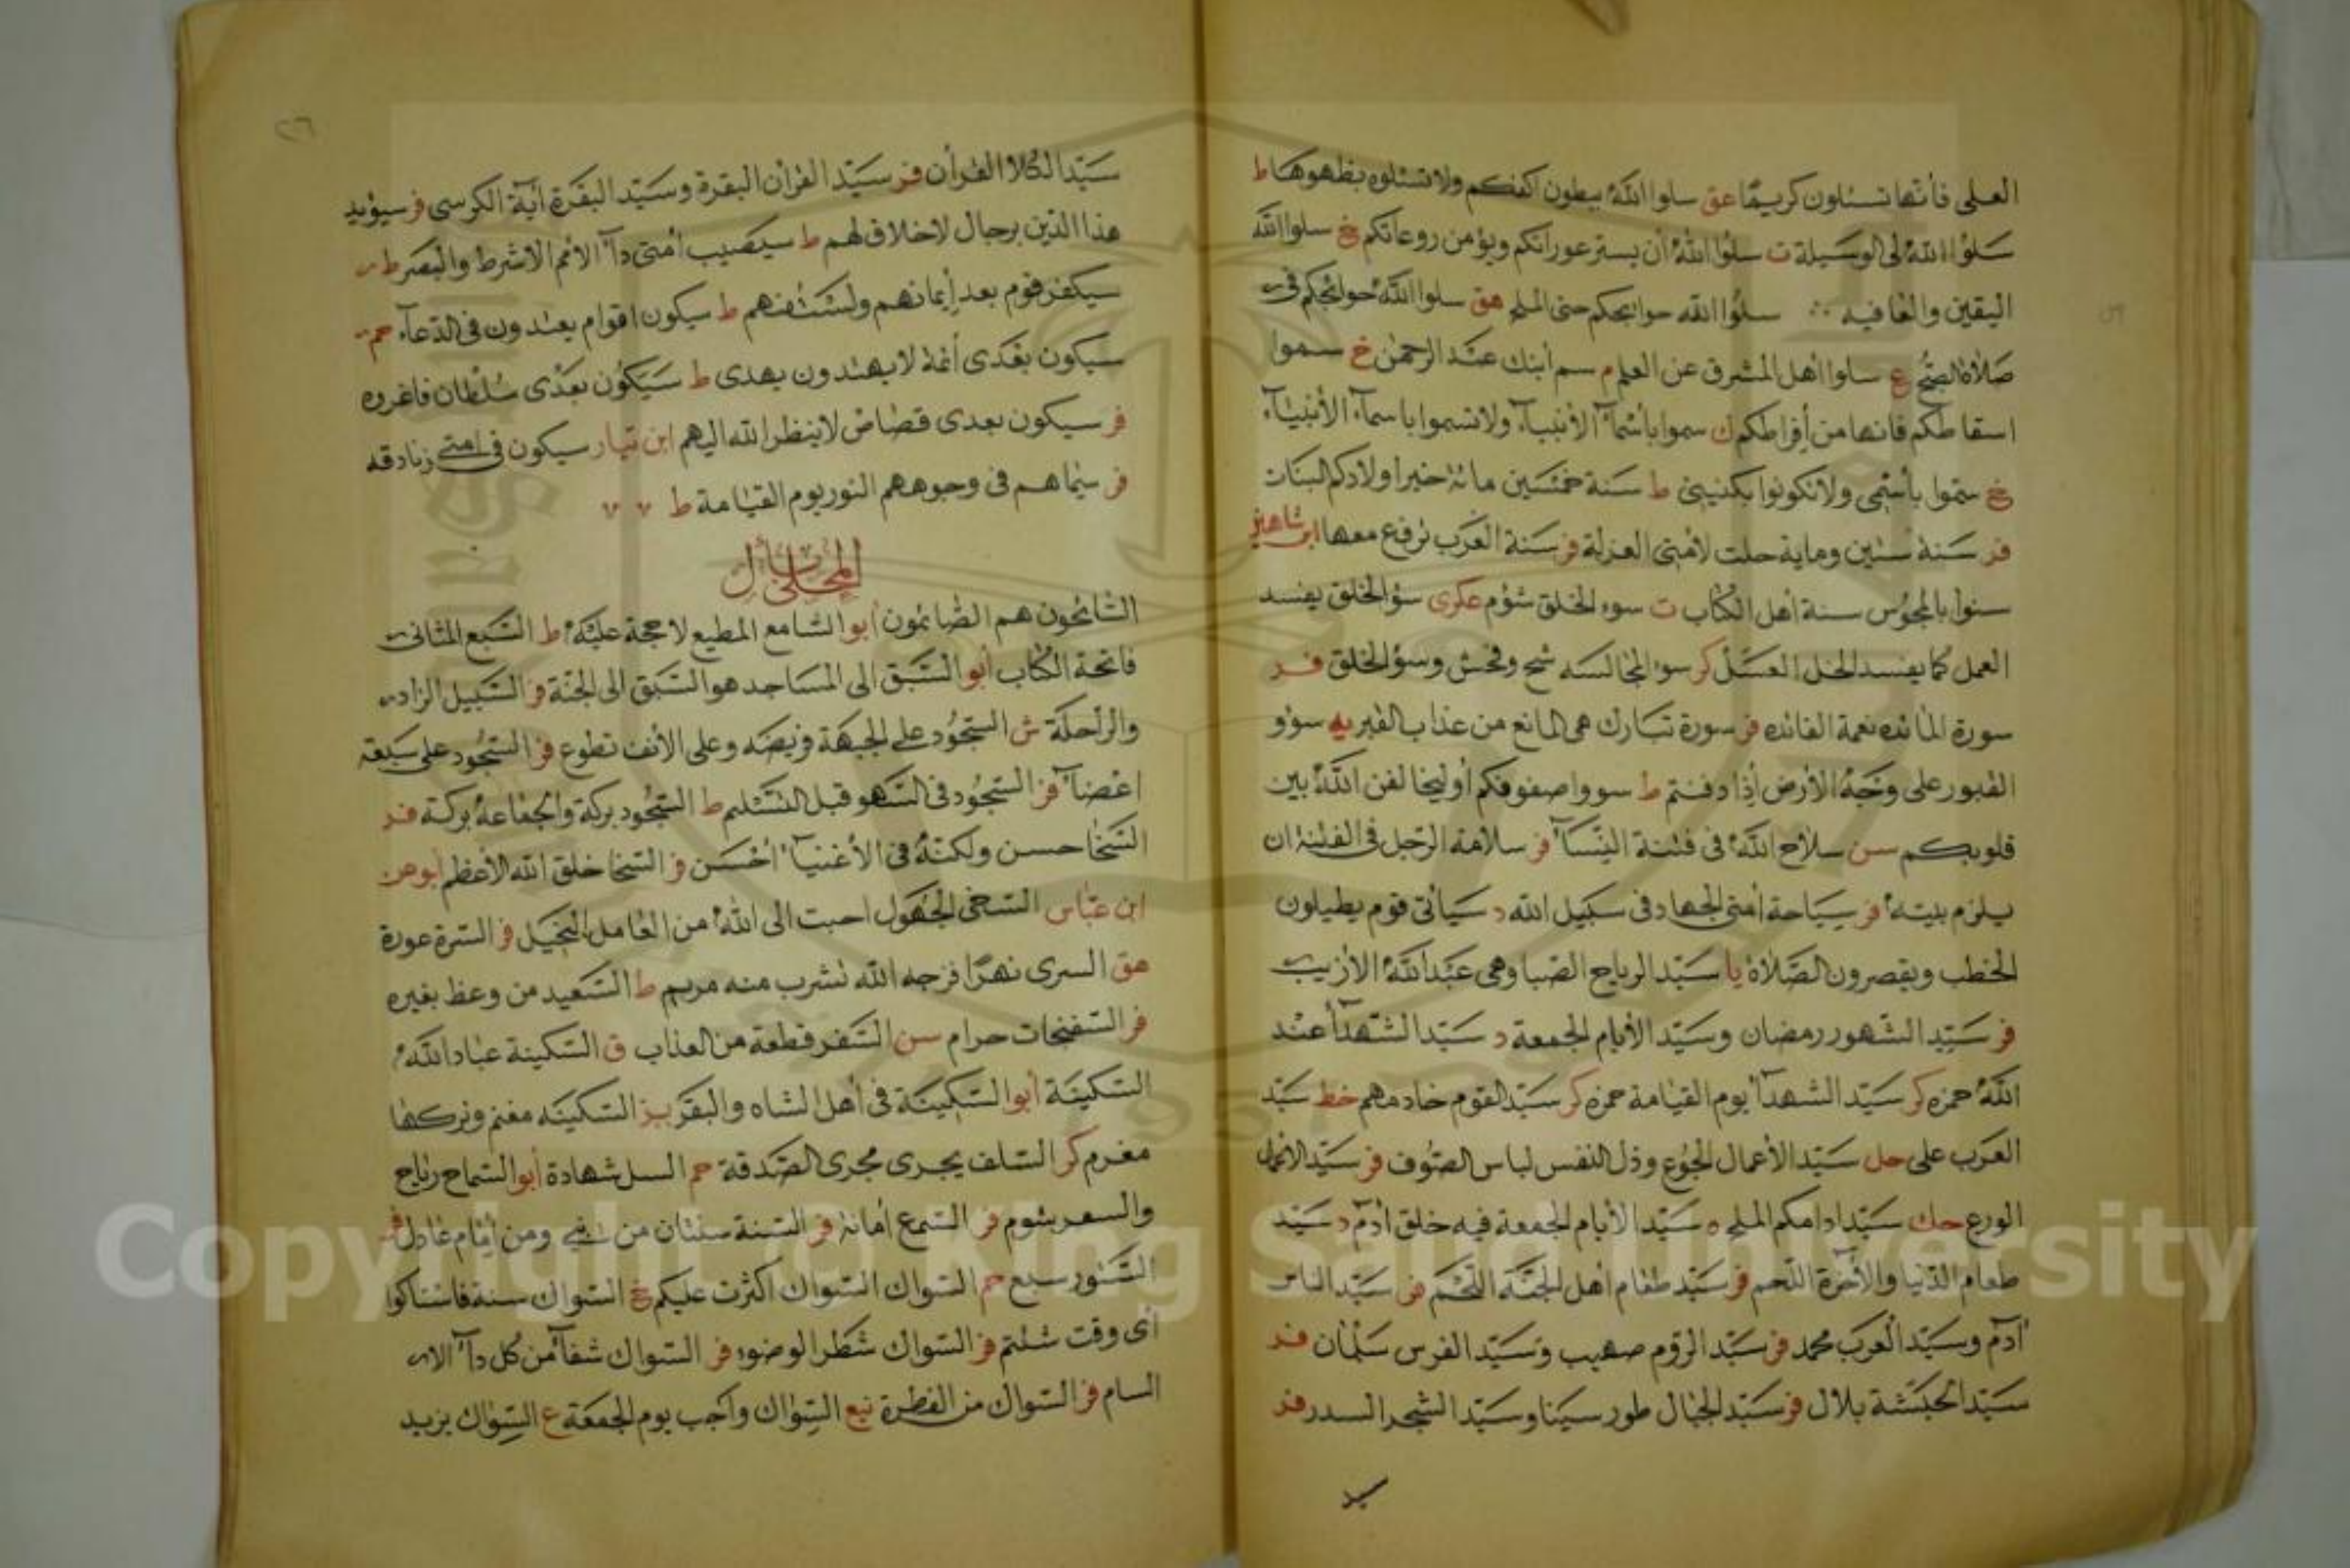 العلى فأنها تسئلون كريما عق سلوا الله ببطون اكفكم ولا تسئلوه بظهوهها ط
سلوا الله لى الوسيلة ت سلوا الله أن يستر عوراتكم ويؤمن روعاتكم خ سلوا الله
اليقين والعافيه سلوا الله حوائجكم حتى الملح هق سلوا الله حوائجكم فى
صلاة الصبح ع سلوا اهل المشرق عن العلم م سم ابنك عبد الرحمن خ سموا
اسقاطكم فانها من أفراطكم ك سموا بأسمآء الأنبيآء ولا تسموا باسمآء الأنبيآء
خ سموا بأسمى ولا تكونوا بكنيتى ط سنة خمسين مائة خير اولادكم البنات
فر سنة ستين وماية حلت لأمتى العزلة فر سنة العرب ترفع معها ابن شاهين
سنوا بالمجوس سنة اهل الكتاب ت سوء الخلق شؤم عكرى سؤ الخلق يفسد
العمل كما يفسد الخل العسل كر سوء المجالسه شح وفحش وسؤ الخلق فر
سورة المائده نعمة الفائده فر سورة تبارك هى المانع من عذاب القبر يه سوو
القبور على وجه الأرض أذا دفنتم ط سووا صفوفكم أو ليخالفن الله بين
قلوبكم سن سلاح الله فى فتنة النسآء فر سلامة الرجل فى الفتنة ان
يلزم بيته فر سياحة امتى الجهاد فى سبيل الله د سيأتى قوم يطيلون
الخطب ويقصرون الصلاة يا سيد الرياح الصبا وهى عند الله الأزيب
فر سيد الشهور رمضان وسيد الأيام الجمعة د سيد الشهدآ عند
الله حمزه كر سيد الشهدآ يوم القيامة حمزه كر سيد القوم خادمهم خط سيد
العرب على حل سيد الأعمال الجوع وذل النفس لباس الصوف فر سيد الأعمال
الورع حك سيد ادامكم الملح ه سيد الأيام الجمعة فيه خلق ادم د سيد
طعام الدنيا والأخرة اللحم فر سيد طعام اهل الجنة اللحم فر سيد الناس
آدم وسيد العرب محمد فر سيد الروم صهيب وسيد الفرس سلمان فر
سيد الحبشة بلال فر سيد الجبال طور سينا وسيد الشجر السدر فر
سيد
سيد الكلام القرأن فر سيد القرأن البقرة وسيد البقرة اية الكرسى فر سيؤيد
هذا الدين برجال لاخلاق لهم ط سيصيب امتى دآء الأمم الاشر ط والبصر ط
سيكفر قوم بعد إيمانهم ولست منهم ط سيكون اقوام يعتدون فى الدعآء حم
سيكون بعدى أئمة لا يهتدون بهدى ط سيكون بعدى سلطان فاغروه
فر سيكون بعدى قصاص لا ينظر الله اليهم ابن سيار سيكون فى امتى زنادقه
فر سيماهم فى وجوههم النور يوم القيامة ط
المحلى بأل
السائحون هم الصائمون أبو السامع المطيع لا حجة عليه ط السبع المثانى
فاتحة الكتاب أبو السبق الى المساجد هو السبق الى الجنة فر السبيل الزاد
والراحلة ش السجود على الجبهة فريضه وعلى الأنف تطوع فر السجود على سبعة
اعضآء فر السجود فى السهو قبل التسليم ط السجود بركة والجماعة بركة فر
السخا حسن ولكنه فى الأغنيآء احسن فر السخا خلق الله الأعظم ابو هن
ابن عباس السخى الجهول احبت الى الله من العامل البخيل فر السرة عورة
هق السرى نهرا فرجه الله لشرب منه مريم ط السعيد من وعظ بغيره
فر السفنجات حرام سن السفر قطعة من العذاب ق السكينة عباد الله
السكينة أبو السكينة فى أهل الشاه والبقر بز السكينه مغنم وتركها
مغرم كر السلف يجرى مجرى الصدقة حم السل شهادة أبو السماح رباح
والسعر شوم فر السمع امانة فر السنة سنتان من نبى ومن إمام عادل فر
السنور سبع حم السواك السواك أكثرت عليكم خ السواك سنة فاستاكوا
أى وقت شئتم فر السواك شطر الوضوء فر السواك شفآء من كل دآء الا
السام فر السواك من الفطرة نيع السواك واجب يوم الجمعة ع السواك يزيد
Copyright © King Saud University
1957